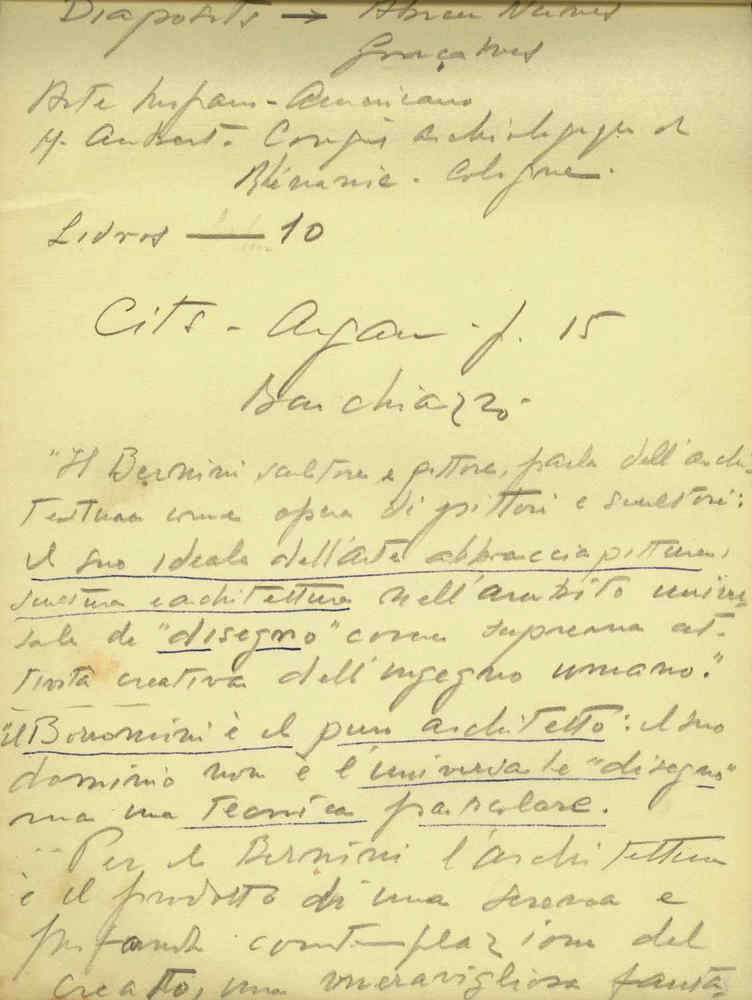 Diaposits → Abreu Nunes
Gonçalves
Arte hispano-Americano
M. Aubert. Congrés archéologique
Rhénanie. Cologne.
Livros — 10
Cits - Argan - p. 15
Buschiazzo.
"Il Bernini scultore e pittore, parla dell'archi-
tettura come opera di pittori e scultori:
il suo ideale dell'arte abbraccia pittura,
scultura e architettura nell'ambito univer-
sale de "disegno" come suprema at-
tività creativa dell'ingegno umano."
"il Borromini è il puro architetto: il suo
dominio non è l'universale "disegno"
ma una tecnica particolare.
Per il Bernini l'architettura
è il prodotto di una serena e
profonda contemplazione del
creatto, una meravigliosa fanta-